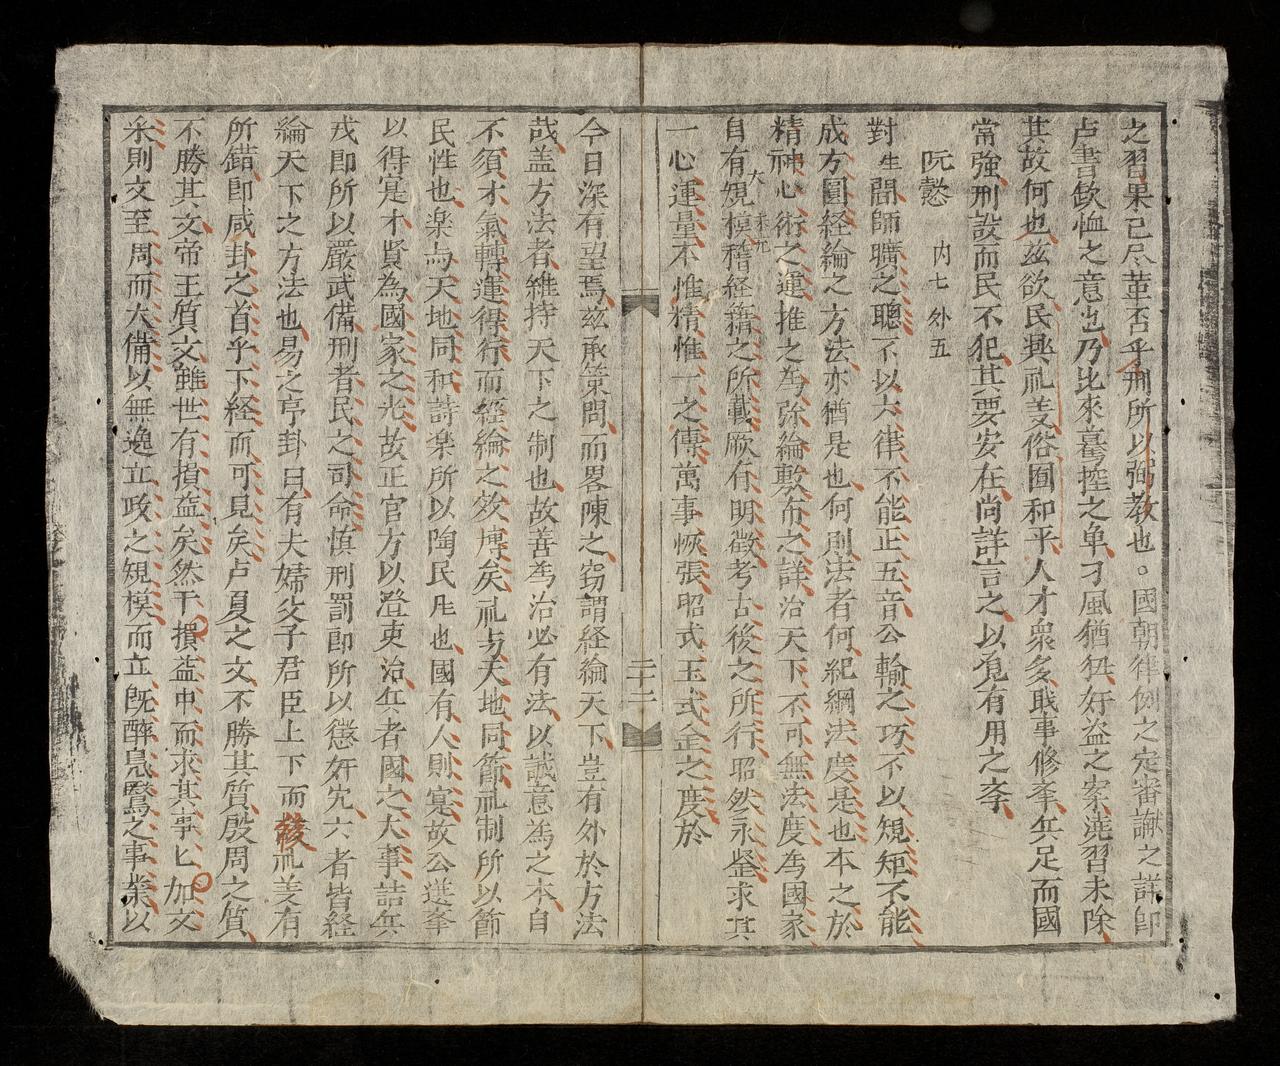 之習果已尽革否乎刑所以弼教也。國朝律例之定審讞之詳即
卢書欽恤之意也乃比來臺控之单刁風猶狃奸盗之案澆習未除
其故何也兹欲民興礼羙俗囿和平人才衆多戝事修李兵足而國
常強刑設而民不犯其要安在尚詳言之以覓有用之斈
阮懿 内七 外五
對生聞師曠之聰不以六律不能正五音公輸之巧不以規矩不能
成方圓経綸之方法亦猶是也何則法者何紀綱法度是也本之於
精神心術之運推之為弥綸敷布之詳治天下不可無法度為國家
自有規模稽経籍之所載厥有明徵考古後之所行昭然永鍳求其
一心運量不惟精惟一之傳萬事恢張昭式玉式金之度於
二十二
今日深有望焉兹承策問而畧陳之窃謂経綸天下豈有外於方法
哉盖方法者維持天下之制也故善為治必有法以誠意為之本自
不須才氣轉運得行而經綸之效博矣礼与天地同節礼制所以節
民性也楽与天地同和詩楽所以陶民性也國有人則寔故公選李
以得寔才賢為國家之光故正官方以澄吏治兵者國之大事詰兵
戎即所以嚴武備刑者民之司命慎刑罰即所以懲奸宄六者皆経
綸天下之方法也易之序卦曰有夫婦父子君臣上下而後礼羙有
所錯即咸卦之首乎下経而可見矣卢夏之文不勝其質殷周之質
不勝其文帝王質文雖世有損益矣然于損益中而求其事匕加文
采則文至周而大備以無逸立政之規模而立既醉鳬鷖之事業以